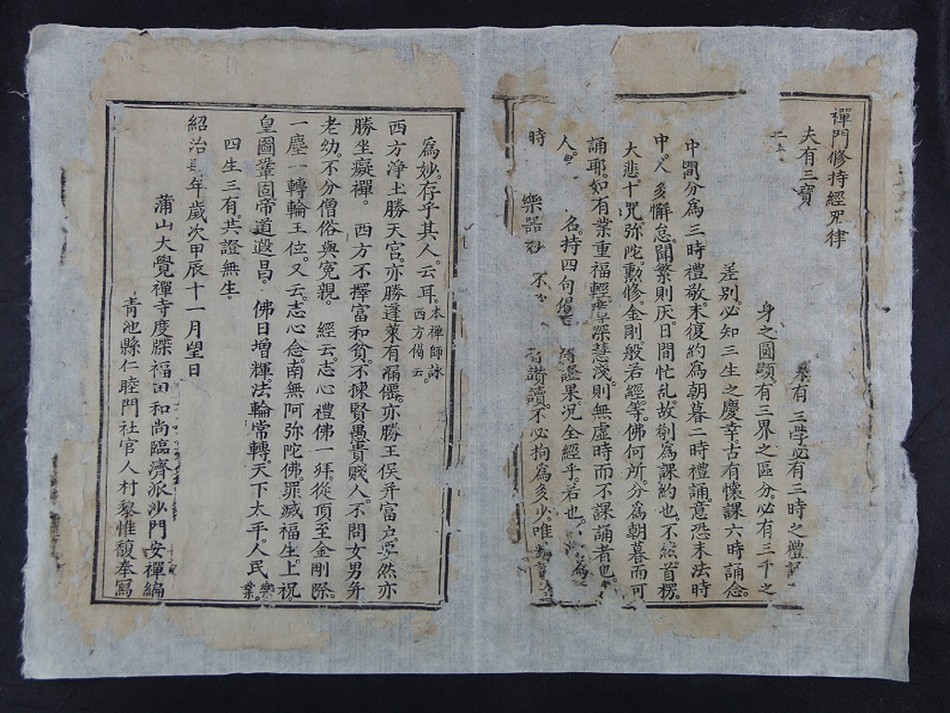 禪門修持經咒律
夫有三寶 有三學必有三時之禮
身之圓顯有三界之區分必有三千之
差別必知三生之慶幸古有懷課六時誦念
中間分為三時禮敬末復約為朝暮二時禮誦意恐末法時
中人多懈怠聞繁則厌日間忙乱故剬為課約也不然首楞
大悲十咒弥陀懃修金剛般若經等佛何所分為朝暮而可
誦耶如有業重福輕 深慧淺則無虛時而不課誦者也
人 名持四句偈 證果况全經乎若也 為
時 樂器 不 讃讀不必拘為多少唯
為妙存乎其人云耳本禪師詠西方偈云
西方淨土勝天宫亦勝蓬萊有漏僊亦勝王侯并富户 然亦
勝坐癡禪 西方不擇富和貧不揀賢愚貴賤人不問女男并
老幼不分僧俗與寃親 經云志心禮佛一拜從頂至金剛際
一塵一轉輪王位又云志心念南無阿弥陀佛罪滅福生上祝
皇圖鞏固帝道遐昌 佛日增輝法輪常轉天下太平人民樂業
四生三有共證無生
紹治 年歲次甲辰十一月望日
蒲山大覺禪寺度牒福田和尚臨濟派沙門安禪編
青池縣仁睦門社官人村黎惟馥奉寫